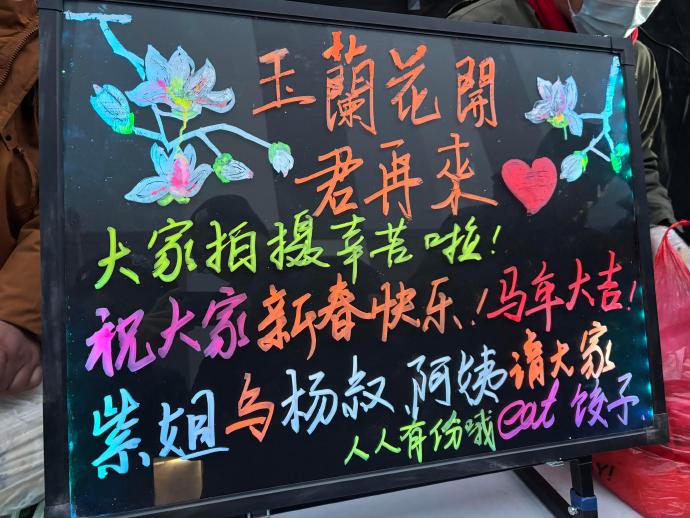 玉蘭花開
君再來
大家拍摄辛苦啦！
祝大家新春快乐！马年大吉！
紫姐与杨叔、阿姨请大家
人人有份哦 eat 饺子.